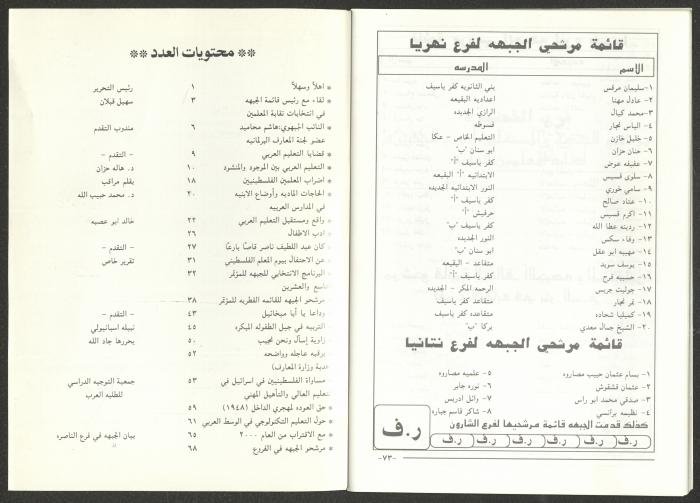 قائمة مرشحي الجبهه لفرع نهريا
الاسم المدرسه
١- سليمان مرقس بني الثانويه كفر ياسيف
٢- عادل مهنا اعداديه البقيعه
٣- محمد كيال الرازي الجديده
٤- الياس نجار فسوطه
٥- خليل خازن التعليم الخاص - عكا
٦- حنان حزان ابو سنان "ب"
٧- عفيفه عوض كفر ياسيف "أ"
٨- سلوى قسيس الابتدائيه "أ" البقيعه
٩- سامي خوري النور الابتدائيه الجديده
١٠- عناد صالح كفر ياسيف "أ"
١١- اكرم قسيس حرفيش "أ"
١٢- ردينه عطا الله كفر ياسيف "ب"
١٣- وفاء سكس النور الجديده
١٤- مهيبه ابو عقل ابو سنان "ب"
١٥- يوسف سويد متقاعد - البقيعه
١٦- حسيبه فرح كفر ياسيف "أ"
١٧- جوليت جريس الرحمه المكر - الجديده
١٨- نمر نجار متقاعد كفر ياسيف
١٩- كميليا شحاده متقاعده كفر ياسيف
٢٠- الشيخ جمال معدي يركا "ب"
قائمة مرشحي الجبهه لفرع نتانيا
١- بسام عثمان حبيب مصاروه ٥- علميه مصاروه
٢- عثمان قشقوش ٦- نوره جابر
٣- صدقي محمد ابو راس ٧- وائل ادريس
٤- نظيمه برانسي ٨- شاكر قاسم جباره
كذلك قدمت الجبهه قائمة مرشحيها لفرع الشارون
ر.ف ر.ف ر.ف ر.ف ر.ف ر.ف
ر.ف
-٧٣-
** محتويات العدد **
* اهلاً وسهلاً ١ رئيس التحرير
* لقاء مع رئيس قائمة الجبهه ٣ سهيل قبلان
في انتخابات نقابة المعلمين
* النائب الجبهوي: هاشم محاميد ٦ مندوب التقدم
عضو لجنة المعارف البرلمانيه
* قضايا التعليم العربي ٩ - التقدم -
* التعليم العربي بين الموجود والمنشود ١٠ د. هاله حزان
* اضراب المعلمين الفلسطينيين ١٨ بقلم مراقب
* الحاجات الماديه وأوضاع الابنيه ٢٠ د. محمد حبيب الله
في المدارس العربيه
* واقع ومستقبل التعليم العربي ٢٢ خالد ابو عصبه
* ادب الاطفال ٢٦
* كان عبد اللطيف ناصر قاصاً بارعاً ٢٧ - التقدم -
* عن الاحتفال بيوم المعلم الفلسطيني ٣١ تقرير خاص
* البرنامج الانتخابي للجبهه للمؤتمر ٣٢
تاسع والعشرين
مرشحو الجبهه للقائمه القطريه للمؤتمر ٣٨
وداعا يا أبا ميخائيل ٤٣ - التقدم -
التربيه في جيل الطفوله المبكره ٤٥ نبيله اسبانيولي
زاوية إسأل ونحن نجيب ٥٠ يحررها جاد الله
برقيه عاجله وواضحه ٥٢
وزارة المعارف)
مساواة الفلسطينيين في اسرائيل في ٥٣ جمعية التوجيه الدراسي
تعليم العالي والتأهيل المهني للطلبه العرب
* حق العوده لمهجري الداخل (١٩٤٨) ٥٩
* حول التعليم التكنولوجي في الوسط العربي ٦١
* مع الاقتراب من العام ٢٠٠٠ ٦٥ بيان الجبهه في فرع الناصره
* مرشحو الجبهه في الفروع ٦٨